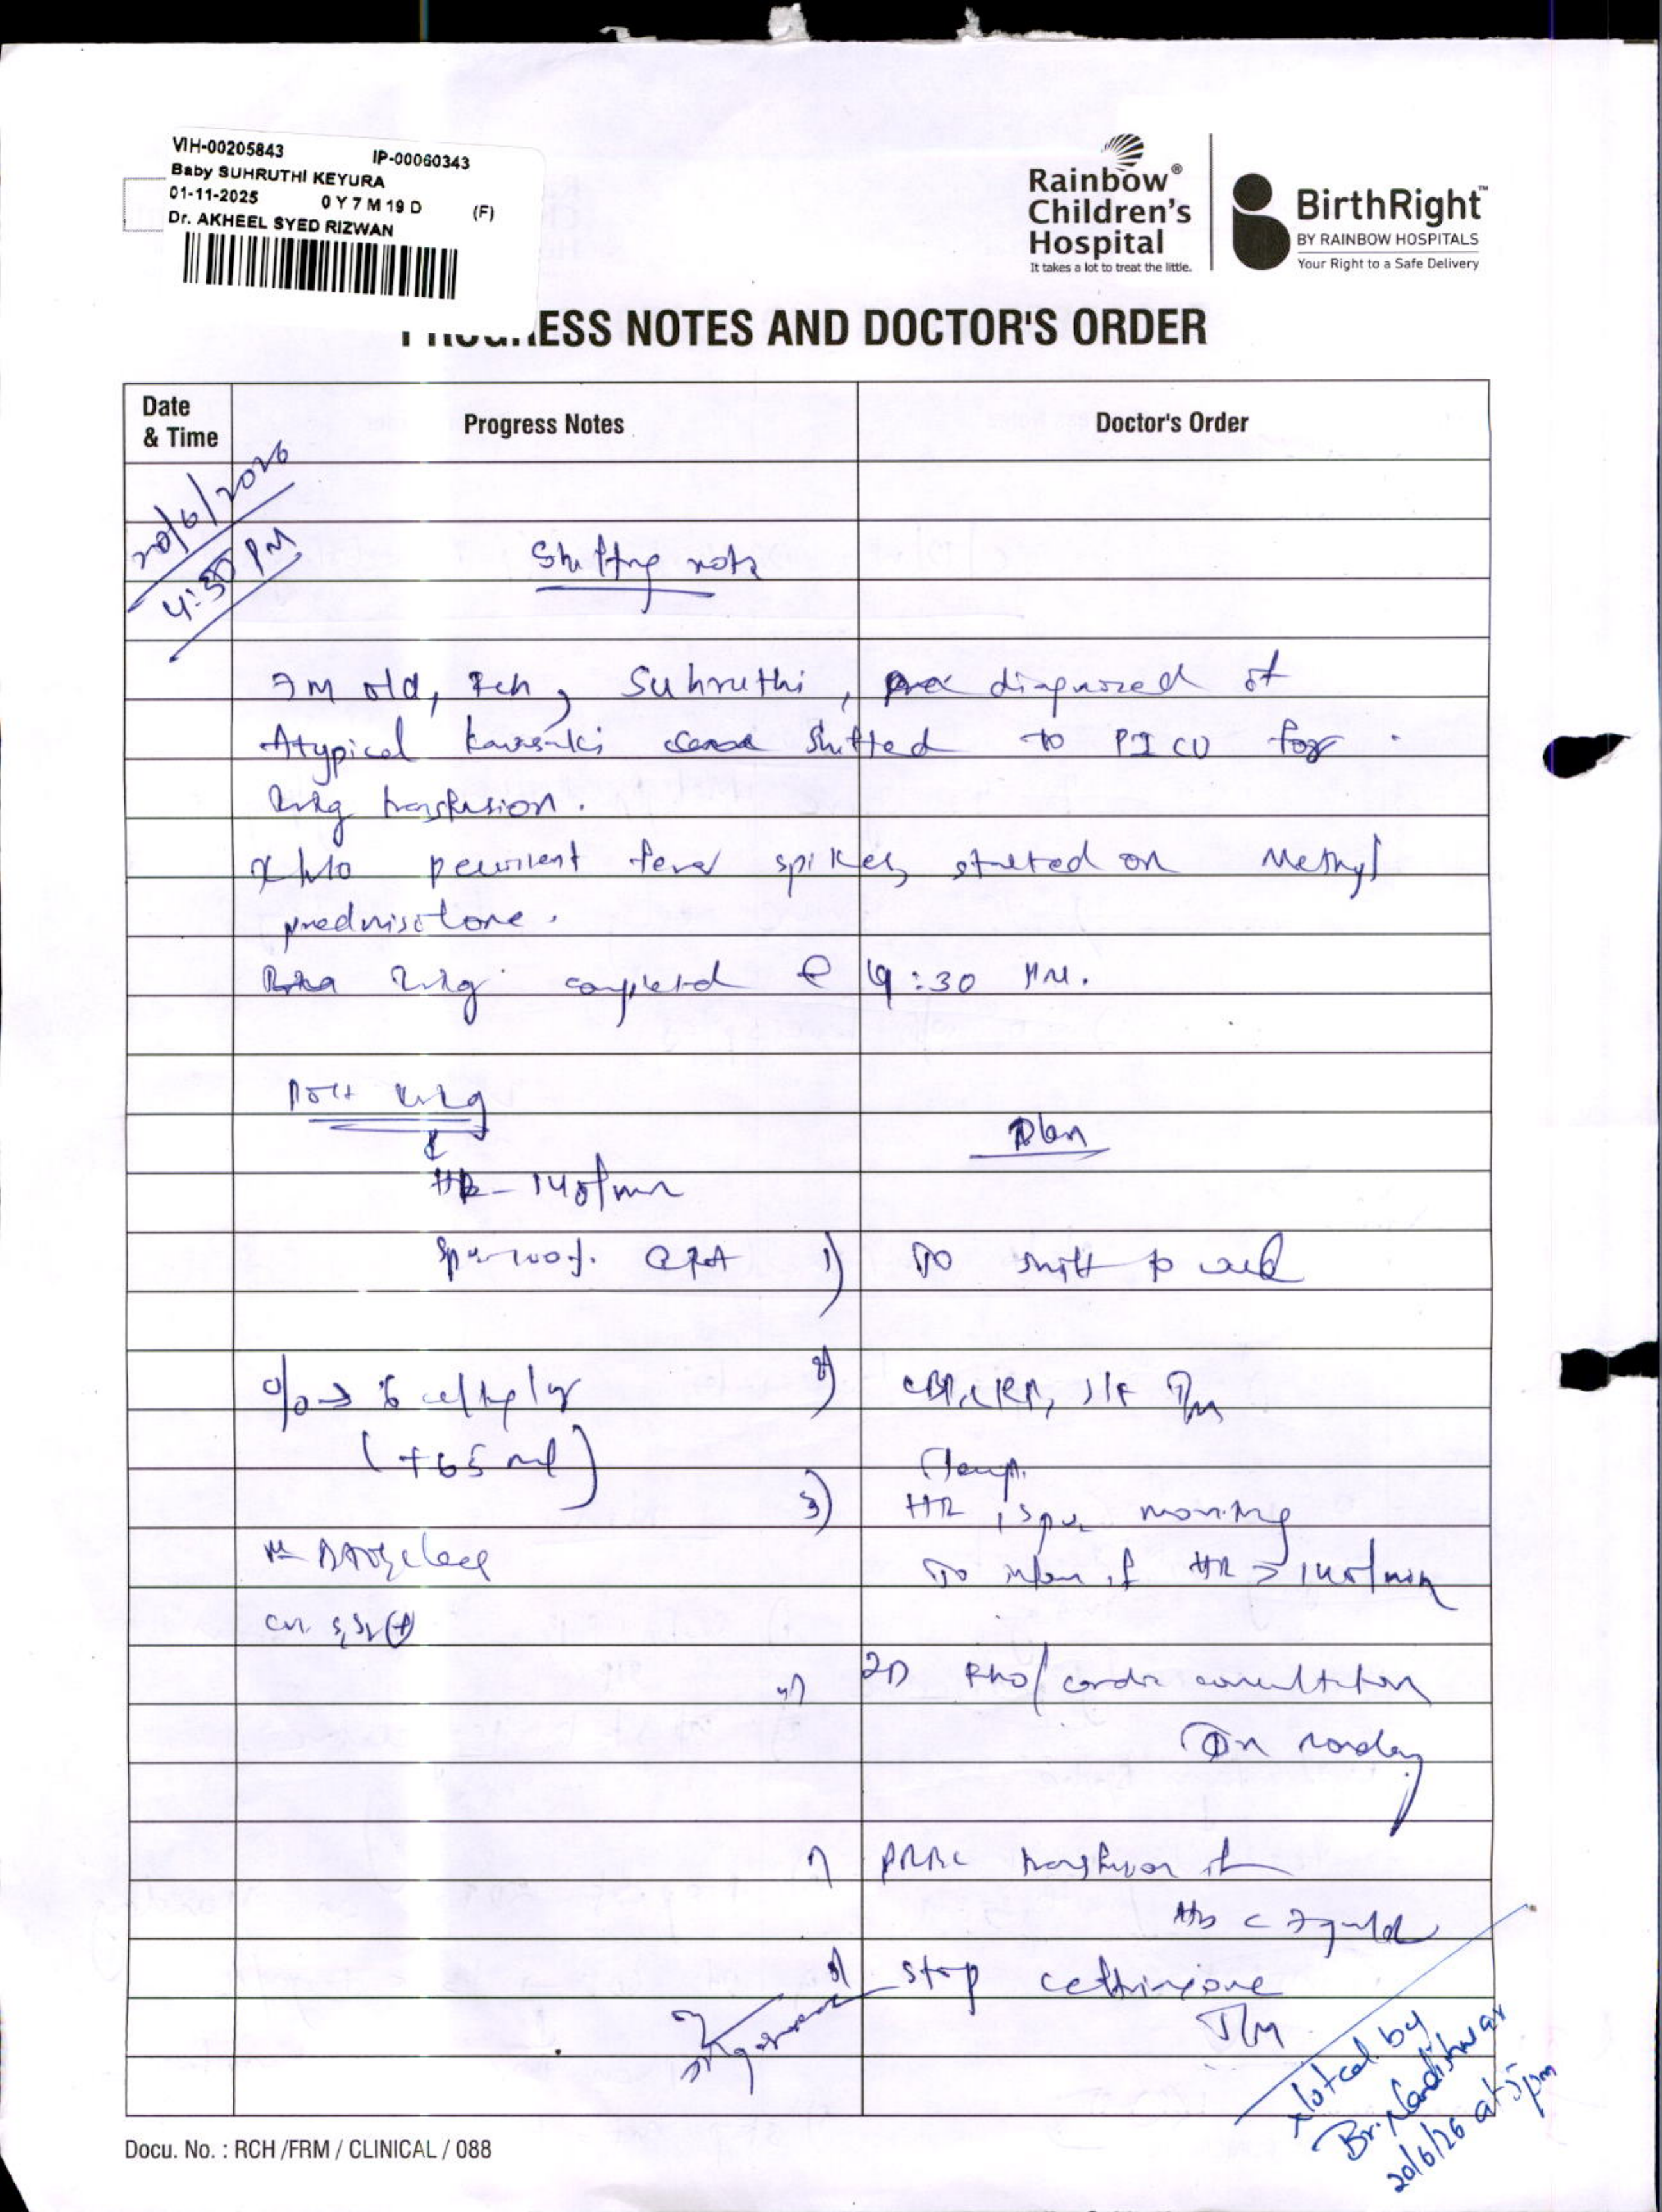 VIH-00205843 IP-00060343
Baby SUHRUTHI KEYURA
01-11-2025 0 Y 7 M 19 D (F)
Dr. AKHEEL SYED RIZWAN
Rainbow®
Children's
Hospital
It takes a lot to treat the little.
BirthRight™
BY RAINBOW HOSPITALS
Your Right to a Safe Delivery
ESS NOTES AND DOCTOR'S ORDER
Date
& Time
Progress Notes
Doctor's Order
20/6/2026
4:30 PM
Shifting note
7M old, Fch, Suhruthi, diagnosed of
Atypical shifted to PICO for
IVIg transfusion.
fever spikes, started on Methyl
IVIg completed @ 4:30 PM.
Post IVIg
Plan
HR - 140/min
SpO2 - 100%. @RA
1) To shift to ward
(+65 ml)
2) CBP, CRP,
Temp.
3) HR, SpO2
To inform if HR > 140/min
S1S2 (+)
4) 2D Echo/cardio consultation
On Monday
PRBC transfusion if
Hb <
stop
Noted by
Br. Nandishwar
20/6/26 at 5pm
Docu. No. : RCH /FRM / CLINICAL / 088